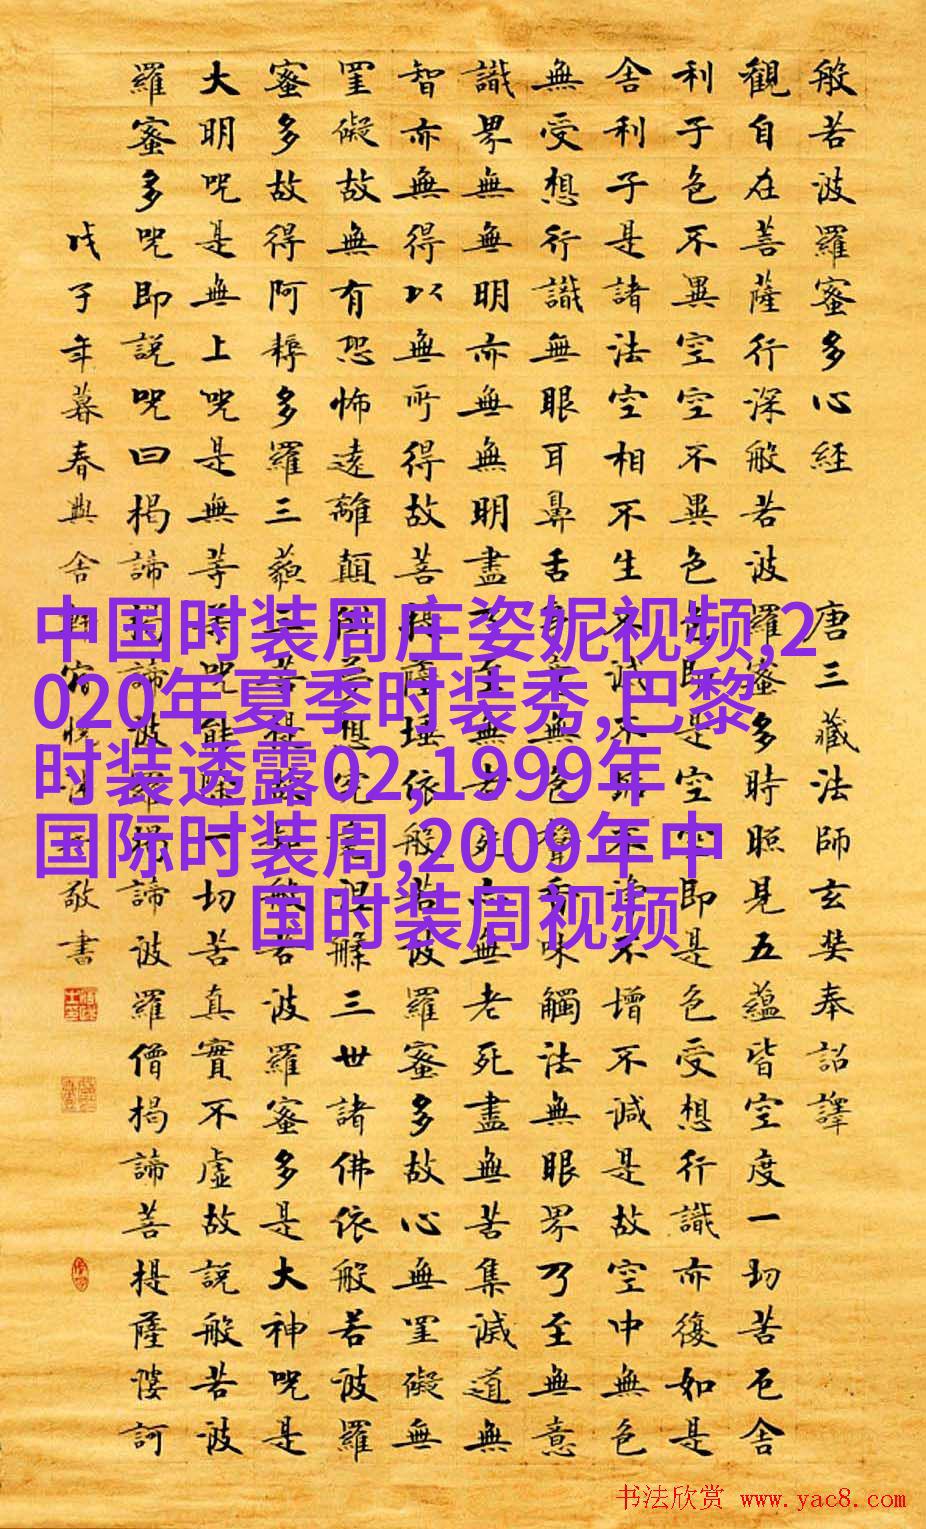 般若波羅蜜多心經 唐三藏法師玄奘奉詔譯
觀自在菩薩行深般若波羅蜜多時照見五蘊皆空度一切苦厄舍
利子色不異空空不異色色即是空空即是色受想行識亦復如是
舍利子是諸法空相不生不滅不垢不淨不增不減是故空中無色
無受想行識無眼耳鼻舌身意無色聲香味觸法無眼界乃至無意
識界無無明亦無無明盡乃至無老死亦無老死盡無苦集滅道無
智亦無得以無所得故菩提薩埵依般若波羅蜜多故心無罣礙無
罣礙故無有恐怖遠離顛倒夢想究竟涅槃三世諸佛依般若波羅
蜜多故得阿耨多羅三藐三菩提故知般若波羅蜜多是大神咒是
大明咒是無上咒是無等等咒能除一切苦真實不虛故說般若波
羅蜜多咒即說咒曰揭諦揭諦波羅揭諦波羅僧揭諦菩提薩婆訶
戊子年暮春與舍敬書
中国时装周庄姿妮视频,2
020年夏季时装秀,巴黎
时装透露02,1999年
国际时装周,2009年中
国时装周视频
书法欣赏 www.yac8.com